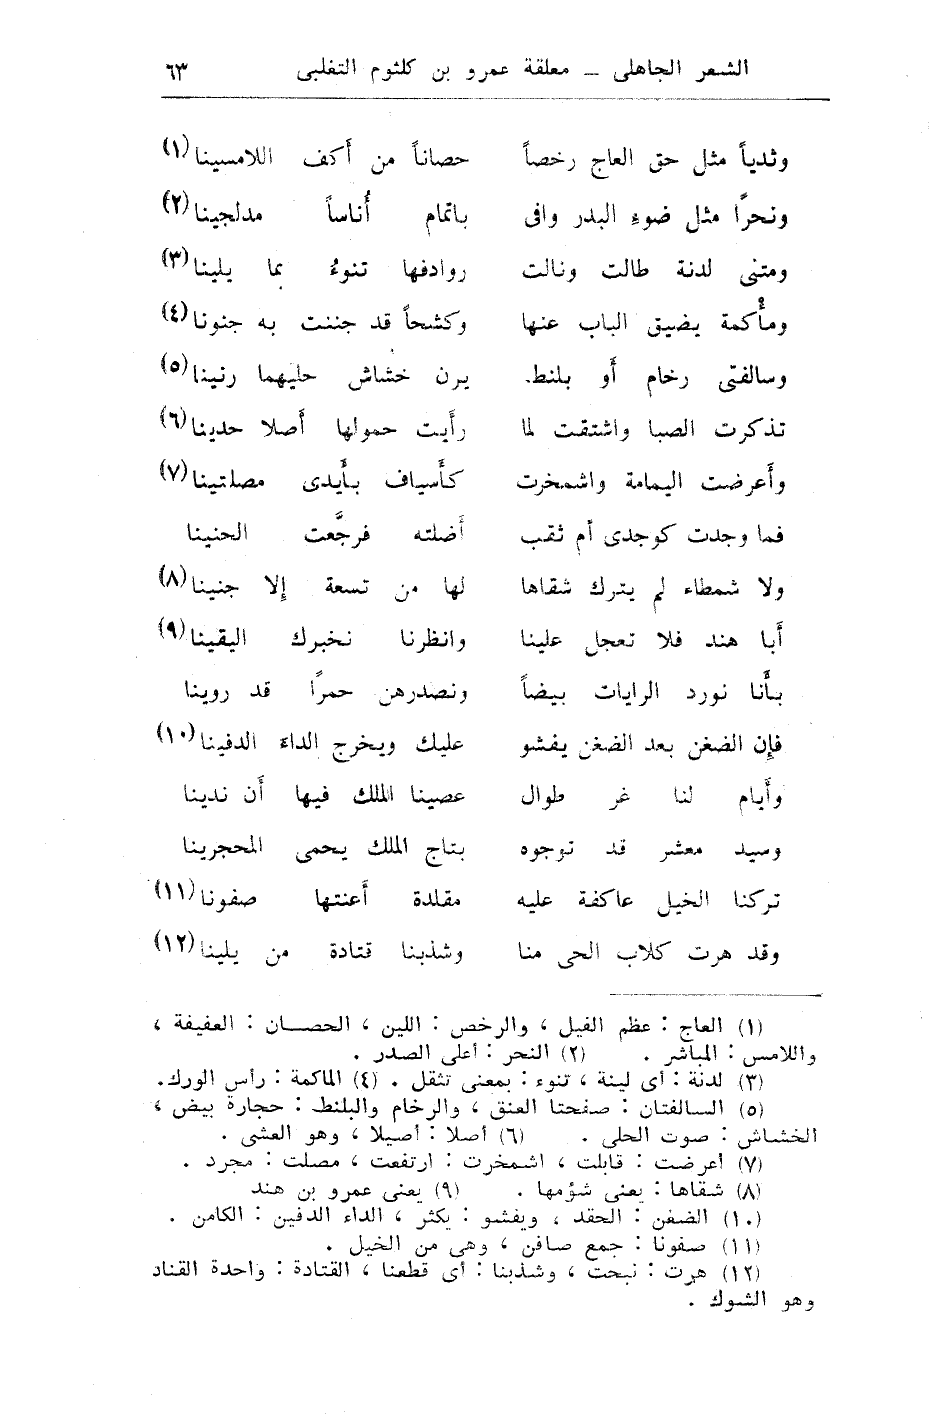 الشعر الجاهلى ــ معلقة عمرو بن كلثوم التغلبى ٦٣
وثدياً مثل حق العاج رخصاً حصاناً من أكف اللامسينا (١)
ونحرًا مثل ضوء البدر وافى باتمام أُناساً مدلجينا (٢)
ومتنى لدنة طالت ونالت روادفها تنوءُ بما يلينا (٣)
ومأكمة يضيق الباب عنها وكشحاً قد جننت به جنونا (٤)
وسالفتى رخام أو بلنط. يرن خشاش حليهما رنينا (٥)
تذكرت الصبا واشتقت لما رأيت حمولها أصلا حدينا (٦)
وأعرضت اليمامة واشمخرت كأسياف بأيدى مصلتينا (٧)
فما وجدت كوجدى أم ثقب أضلته فرجَّعت الحنينا
ولا شمطاء لم يترك شقاها لها من تسعة إلا جنينا (٨)
أبا هند فلا تعجل علينا وانظرنا نخبرك اليقينا (٩)
بأنا نورد الرايات بيضاً ونصدرهن حمرًا قد روينا
فإن الضغن بعد الضغن يفشو عليك ويخرج الداءَ الدفينا (١٠)
وأيام لنا غر طوال عصينا الملك فيها أن ندينا
وسيد معشر قد توجوه بتاج الملك يحمى المحجرينا
تركنا الخيل عاكفة عليه مقلدة أعنتها صفونا (١١)
وقد هرت كلاب الحى منا وشذبنا قتادة من يلينا (١٢)
(١) العاج : عظم الفيل ، والرخص : اللين ، الحصان : العفيفة ،
واللامس : المباشر . (٢) النحر : أعلى الصدر .
(٣) لدنة : أى لينة ، تنوء : بمعنى تثقل . (٤) الماكمة : رأس الورك.
(٥) السالفتان : صفحتا العنق ، والرخام والبلنط : حجارة بيض ،
الخشاش : صوت الحلى . (٦) أصلا : أصيلا ، وهو العشى .
(٧) أعرضت : قابلت ، اشمخرت : ارتفعت ، مصلت : مجرد .
(٨) شقاها : يعنى شؤمها . (٩) يعنى عمرو بن هند
(١٠) الضغن : الحقد ، ويفشو : يكثر ، الداء الدفين : الكامن .
(١١) صفونا : جمع صافن ، وهى من الخيل .
(١٢) هرت : نبحت ، وشذبنا : أى قطعنا ، القتادة : واحدة القتاد
وهو الشوك .